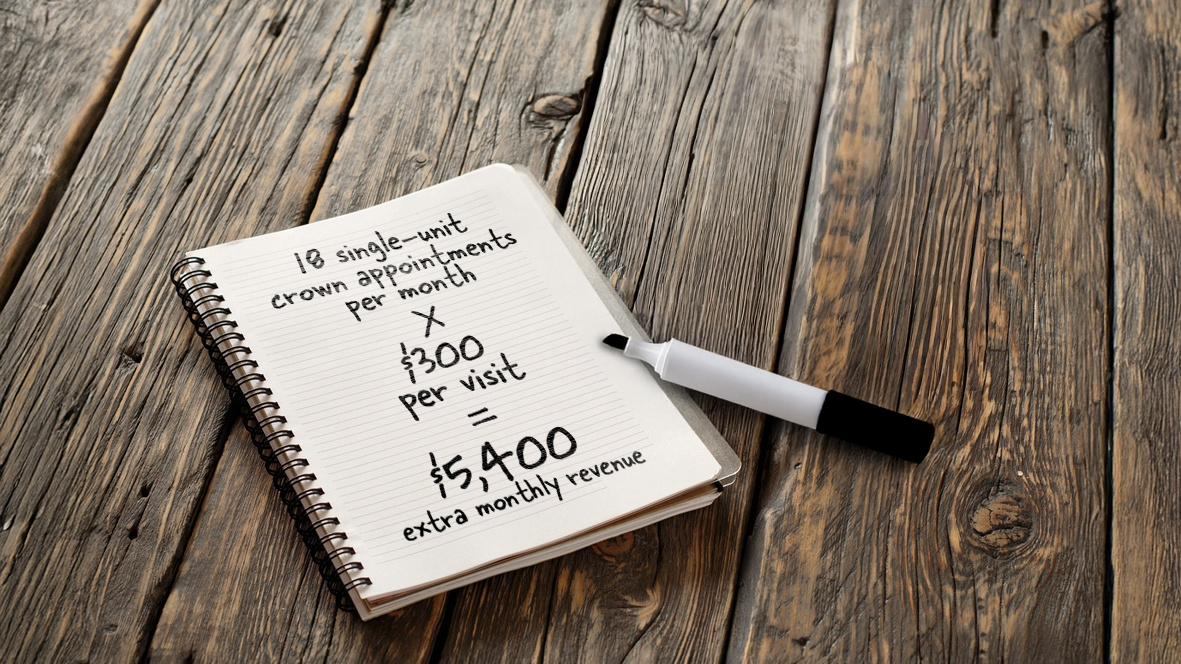 18 single-unit
crown appointments
per month
X
$300
per visit
=
$5,400
extra monthly revenue